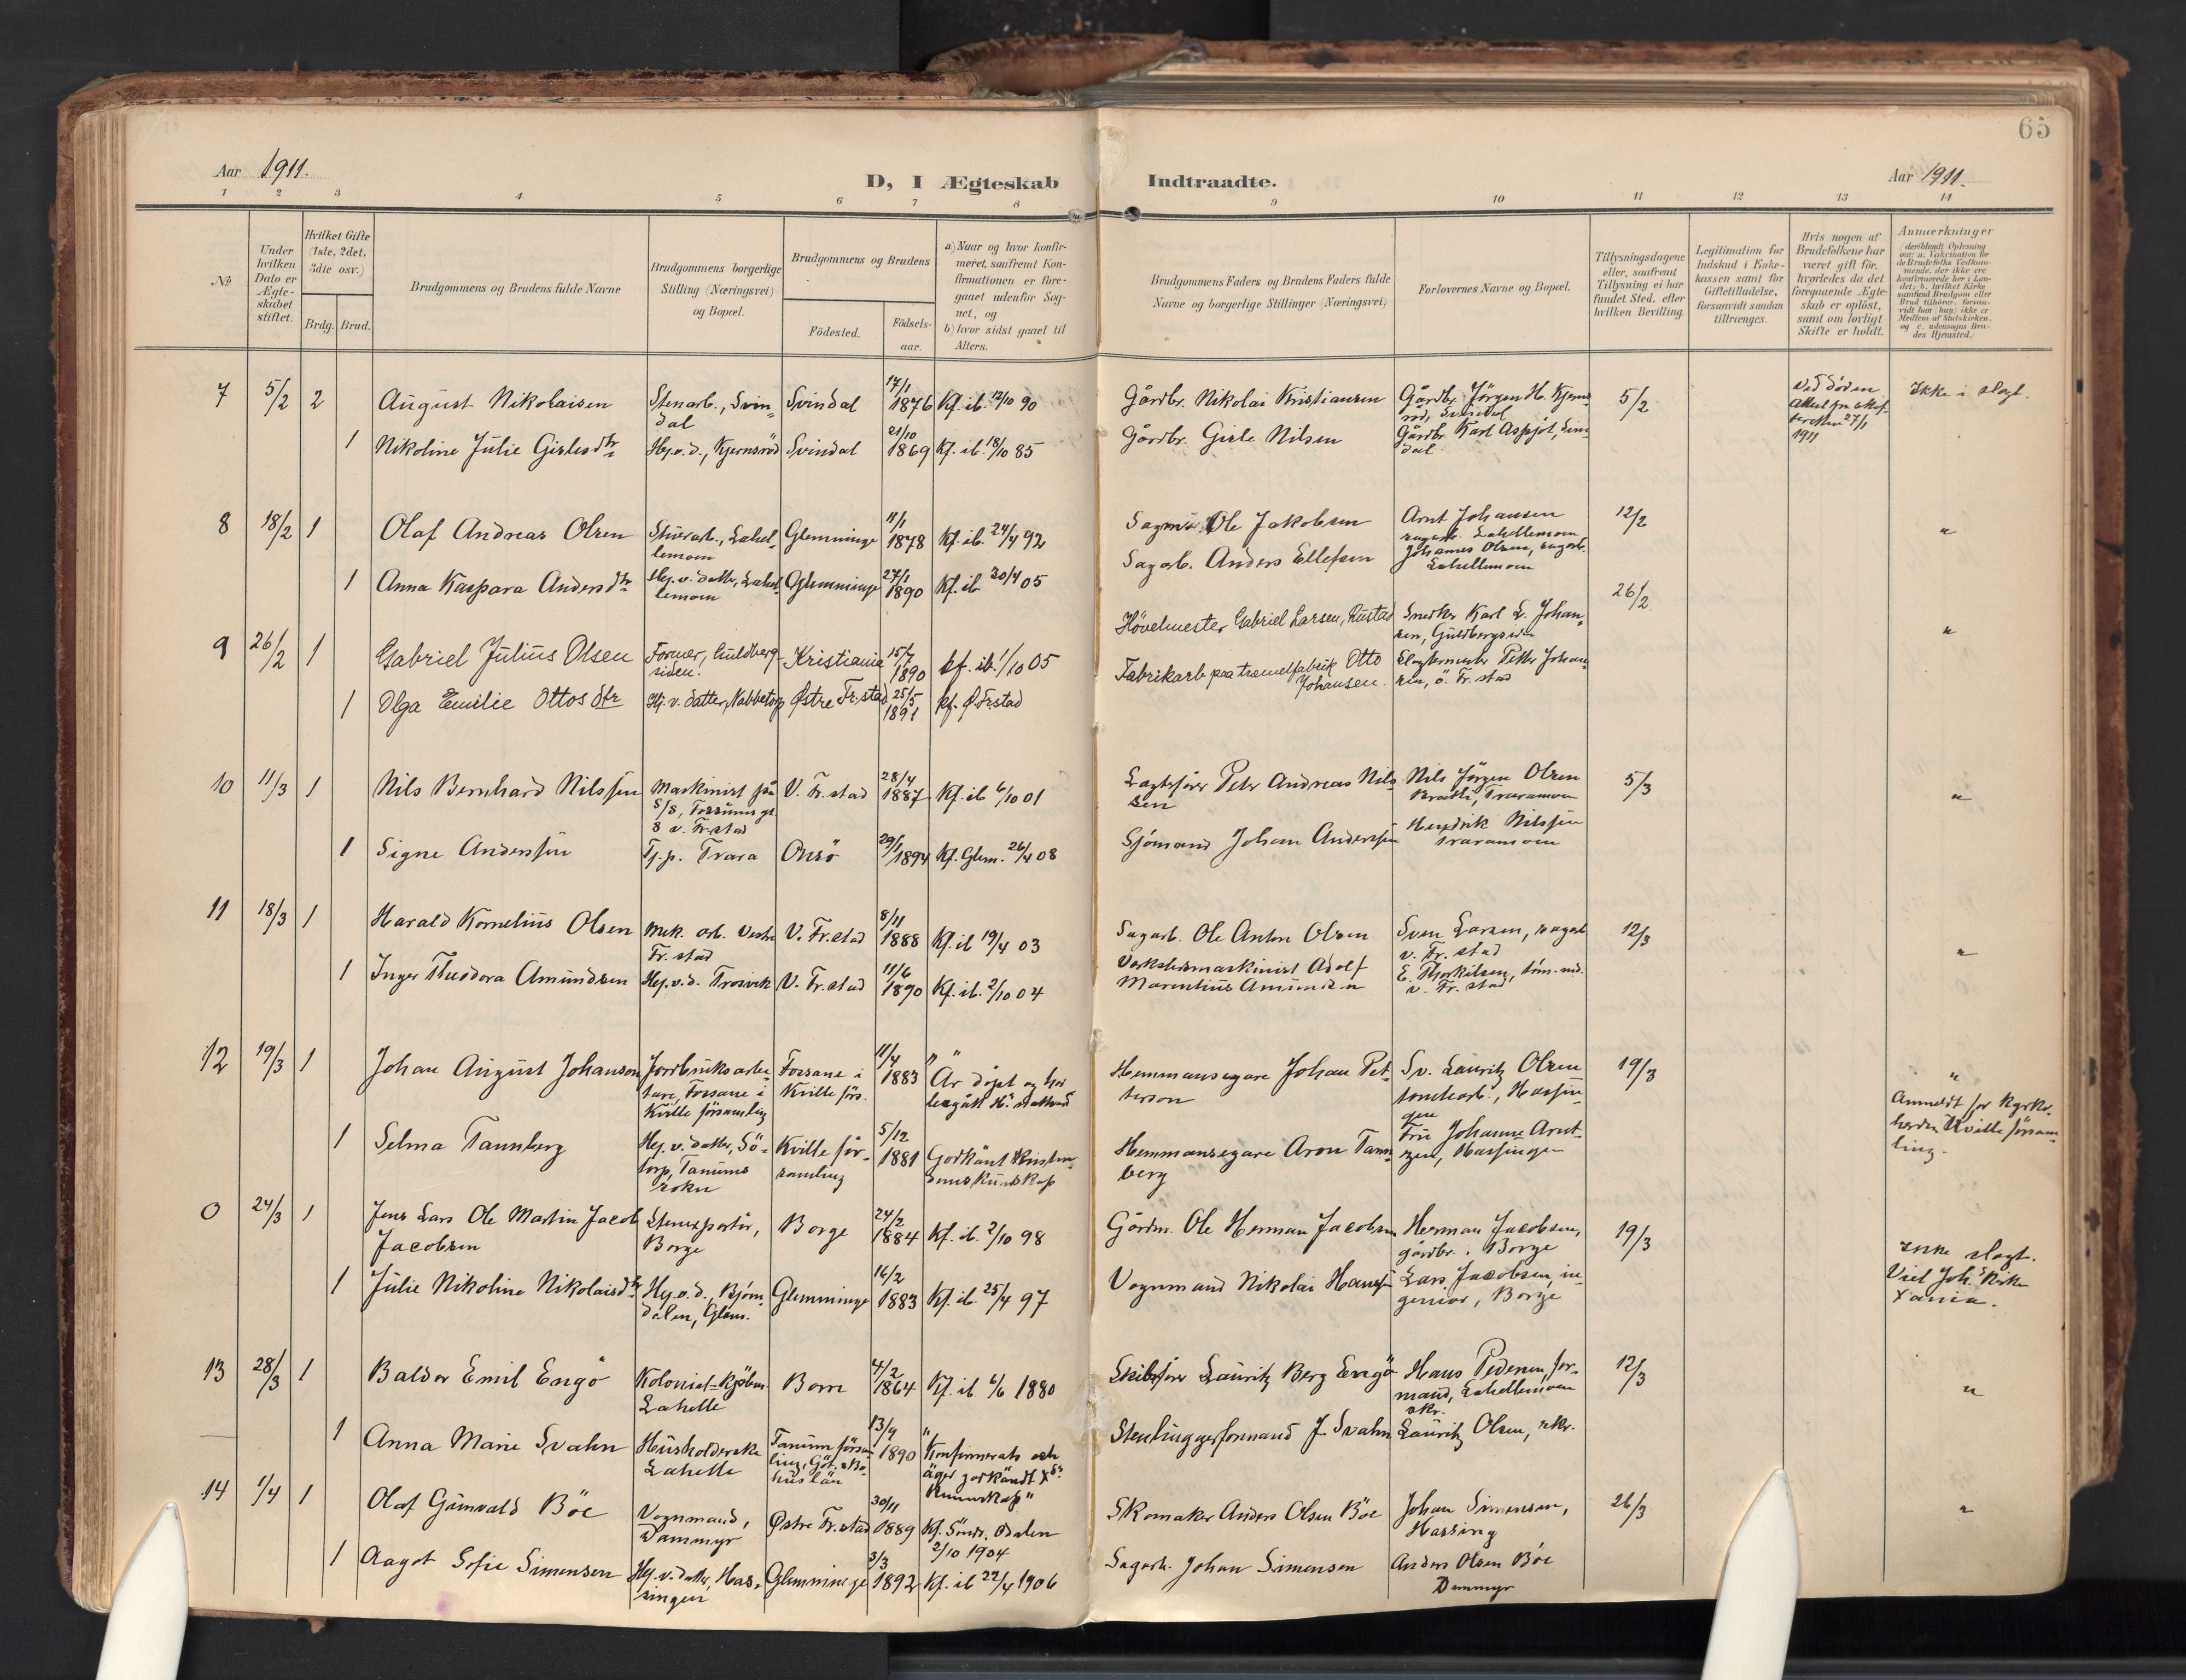 65
Aar 1911.
D, I Ægteskab Indtraadte.
Aar 1911.
1 2 3 4 5 6 7 8 9 10 11 12 13 14
No
Under hvilken Dato er Ægteskabet stiftet.
Hvilket Gifte (1ste, 2det, 3die osv.)
Brdg. Brud.
Brudgommens og Brudens fulde Navne
Brudgommens borgerlige Stilling (Næringsvei) og Bopæl.
Brudgommens og Brudens
Födested. Födselsaar.
a) Naar og hvor konfirmeret, saafremt Konfirmationen er foregaaet udenfor Sognet, og
b) hvor sidst gaaet til Alters.
Brudgommens Faders og Brudens Faders fulde Navne og borgerlige Stillinger (Næringsvei)
Forlovernes Navne og Bopæl.
Tillysningsdagene eller, saafremt Tillysning ei har fundet Sted, efter hvilken Bevilling.
Legitimation for Indskud i Enkekassen samt for Giftetilladelse, forsaavidt saadan tiltrænges.
Hvis nogen af Brudefolkene har været gift för, hvorledes da det foregaaende Ægteskab er oplöst, samt om lovligt Skifte er holdt.
Anmærkninger
7 5/2 2 August Nikolaisen
Stenarb., Svindal
Svindal
17/1 1876
Kf. ib. 12/10 90
Gårdbr. Nikolai Kristiansen
Gårdbr. Jörgen H. Kjernsröd, Svindal
5/2
Ved döden
27/1 1911
Ikke i slægt.
1 Nikoline Julie Gislesdtr
Hj.v.d., Kjernsröd
Svindal
21/10 1869
Kf. ib. 18/10 85
Gårdbr. Gisle Nilsen
Gårdbr. Karl Aspjöt, Svindal
8 18/2 1 Olaf Andreas Olsen
Lahellemoen
Glemminge
11/1 1878
Kf. ib. 24/4 92
Ole Jakobsen
Arnt Johansen
sagarb. Lahellemoen
12/2
"
1 Anna Kaspara Andersdtr
Hj.v. datter, Lahellemoen
Glemminge
27/1 1890
Kf. ib 30/4 05
Sagarb. Anders Ellefsen
Johannes Olsen, sagarb. Lahellemoen
9 26/2 1 Gabriel Julius Olsen
Former, Guldbergsiden.
Kristiania
15/7 1890
kf. ib. 1/10 05
Hövelmester Gabriel Larsen, Rustad
Snedker Karl L. Johansen, Guldbergsiden
26/2
"
1 Olga Emilie Ottosdtr
Hj.v. datter, Nabbetorp
Østre Fr.stad
25/5 1891
kf. Ø. Frstad
Fabrikarb paa træmelfabrik Otto Johansen.
Slagtermester Petter Johansen, ö. Fr.stad
10 11/3 1 Nils Bernhard Nilssen
Maskinist på S/S, Fossums gt. 8 v. Fr.stad
V. Fr.stad
28/4 1887
Kf. ib 6/10 01
Lægterförer Peter Andreas Nilssen
Nils Jörgen Olsen
Traramoen
5/3
"
1 Signe Anderssen
Tj.p. Trara
Onsö
29/1 1894
Kf. Glem. 26/4 08
Sjömand Johan Anderssen
Hendrik Nilssen
Traramoen
11 18/3 1 Harald Kornelius Olsen
Mek. arb. Vestre Fr.stad
V. Fr.stad
8/11 1888
Kf. ib 19/4 03
Sagarb. Ole Anton Olsen
Sven Larsen, sagarb v. Fr.stad
12/3
"
1 Inger Theodora Amundsen
Hj.v.d. Trosvik
V. Fr.stad
11/6 1890
Kf. ib. 2/10 04
Verkstedsmaskinist Adolf Marentius Amundsen
E. Thorkilsen, töm.md. v. Fr.stad
12 19/3 1 Johan August Johanson
Jordbruksarbetare, Fossane i Kville församling
Fossane i Kville förs.
11/4 1883
"Är döpt og har begått H. nattvard
Hemmansegare Johan Petterson
Sv. Lauritz Olsen
tomtearb., Hassingen
19/3
"
Anmeldt for kyrkoherden Kville församling.
1 Selma Tannberg
Hj.v. datter, Sötorp, Tanums sokn
Kville församling
5/12 1881
Godkänt Kristendomskunskap
Hemmansegare Aron Tannberg
Fru Johanne Arntzen, Hassingen
0 24/3 1 Jens Lars Ole Martin Jacob Jacobsen
Stenexportör, Borge
Borge
24/2 1884
Kf. ib. 2/10 98
Gårdm. Ole Herman Jacobsen
Herman Jacobsen, gårdbr. i Borge
19/3
Ikke slægt.
Viet Joh's Kirke Xania.
1 Julie Nikoline Nikolaisdtr
Hj.v.d., Björndalen, Glem.
Glemminge
16/2 1883
Kf. ib. 25/4 97
Vognmand Nikolai Hanssen
Lars Jacobsen, ingeniör, Borge
13 28/3 1 Baldor Emil Engö
Lahelle
Borre
4/2 1864
Kf. ib 6/6 1880
Skibsförer Lauritz Berg Engö
Hans Pedersen, formand, Lahellemoen skr.
12/3
"
1 Anna Marie Svahn
Husholderske Lahelle
Tanum församling, Göt. & Bohuslän
13/9 1890
"Konfirmerats och äger godkändt Xds Kunnskap"
Stenhuggerformand J. Svahn
Lauritz Olsen, skr.
14 1/4 1 Olaf Gunvald Böe
Vognmand, Dammyr
Østre Fr.stad
30/11 1889
Kf. Söndr. Odalen 2/10 1904
Skomaker Anders Olsen Böe
Johan Simensen, Hassing
26/3
"
1 Aagot Sofie Simensen
Hj.v. datter, Hassingen
Glemminge
3/3 1892
Kf. ib 22/4 1906
Sagarb. Johan Simensen
Anders Olsen Böe
Dammyr